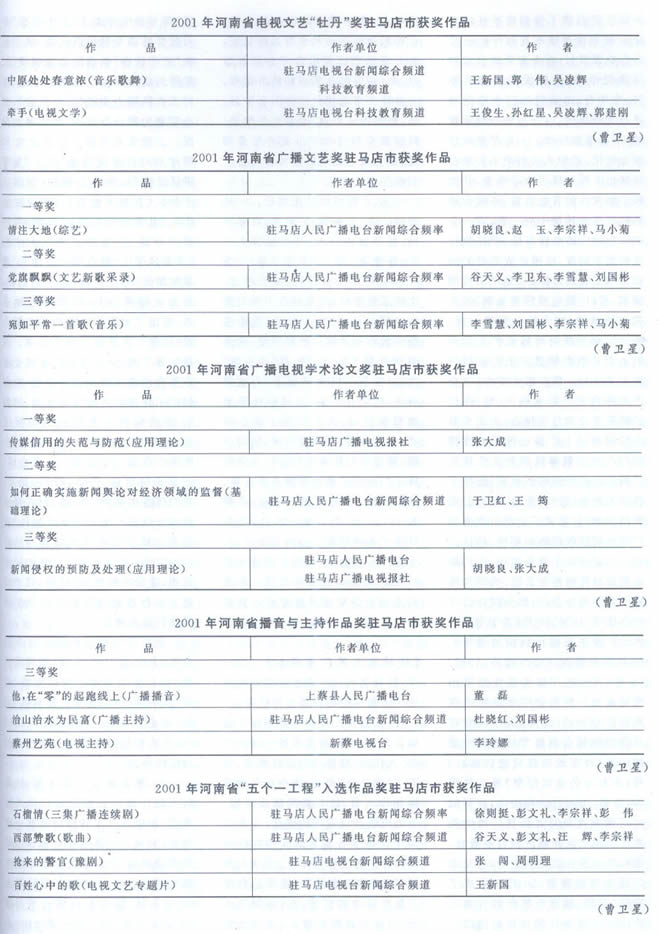 2001年河南省电视文艺“牡丹”奖驻马店市获奖作品
作 品 作者单位 作 者
中原处处春意浓(音乐歌舞) 驻马店电视台新闻综合频道 科技教育频道 王新国、郭 伟、吴凌辉
牵手(电视文学) 驻马店电视台科技教育频道 王俊生、孙红星、吴凌辉、郭建刚
(曹卫星)
2001年河南省广播文艺奖驻马店市获奖作品
作 品 作者单位 作 者
一等奖
情注大地(综艺) 驻马店人民广播电台新闻综合频率 胡晓良、赵 玉、李宗祥、马小菊
二等奖
党旗飘飘(文艺新歌采录) 驻马店人民广播电台新闻综合频率 谷天义、李卫东、李雪慧、刘国彬
三等奖
宛如平常一首歌(音乐) 驻马店人民广播电台新闻综合频率 李雪慧、刘国彬、李宗祥、马小菊
(曹卫星)
2001年河南省广播电视学术论文奖驻马店市获奖作品
作 品 作者单位 作 者
一等奖
传媒信用的失范与防范(应用理论) 驻马店广播电视报社 张大成
二等奖
如何正确实施新闻舆论对经济领域的监督(基
础理论) 驻马店人民广播电台新闻综合频道 于卫红、王 筠
三等奖
新闻侵权的预防及处理(应用理论) 驻马店人民广播电台 驻马店广播电视报社 胡晓良、张大成
(曹卫星)
2001年河南省播音与主持作品奖驻马店市获奖作品
作 品 作者单位 作 者
三等奖
他,在“零”的起跑线上(广播播音) 上蔡县人民广播电台 董 磊
治山治水为民富(广播主持) 驻马店人民广播电台新闻综合频道 杜晓红、刘国彬
蔡州艺苑(电视主持) 新蔡电视台 李玲娜
(曹卫星)
2001年河南省“五个一工程”入选作品奖驻马店市获奖作品
石榴情(三集广播连续剧) 驻马店人民广播电台新闻综合频率 徐则挺、彭文礼、李宗祥、彭 伟
西部赞歌(歌曲) 驻马店人民广播电台新闻综合频道 谷天义、彭文礼、汪 辉、李宗祥
抢来的警官(豫剧) 驻马店电视台新闻综合频道 张 闯、周明理
百姓心中的歌(电视文艺专题片) 驻马店电视台新闻综合频道 王新国
(曹卫星)